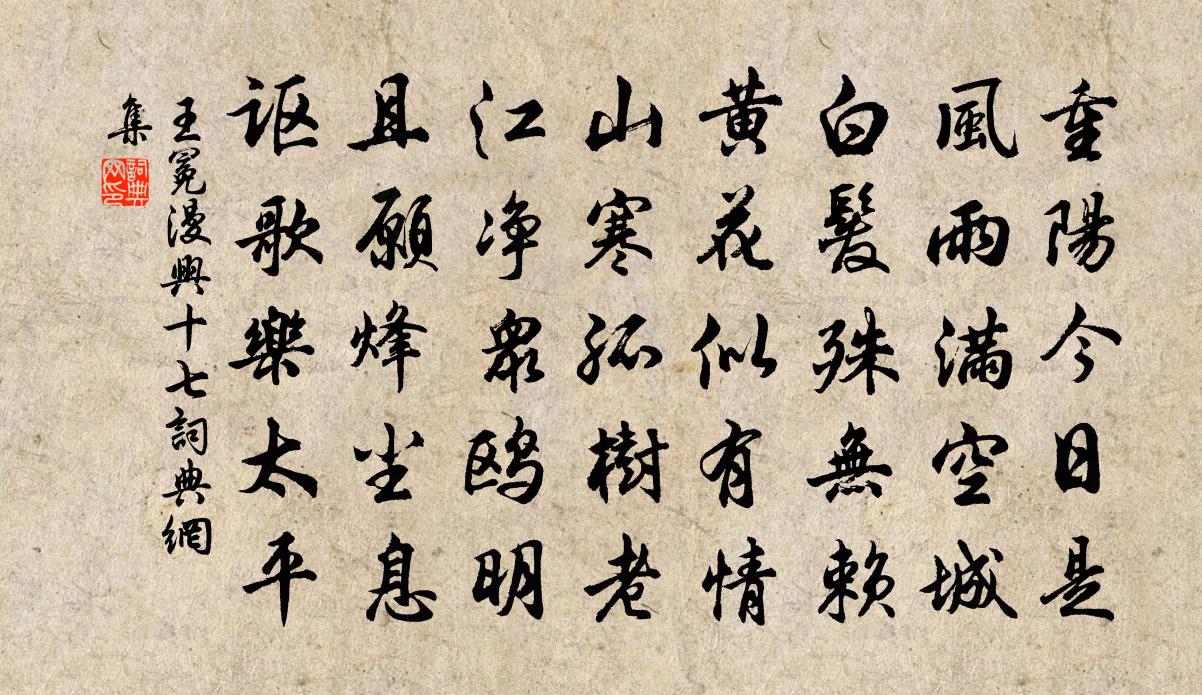 重陽今日是
風雨滿空城
白髮殊無賴
黄花似有情
山寒孤樹老
江净衆鸥明
且願烽尘息
讴歌樂太平
王冕漫興十七詞典網
集
詞典
网印